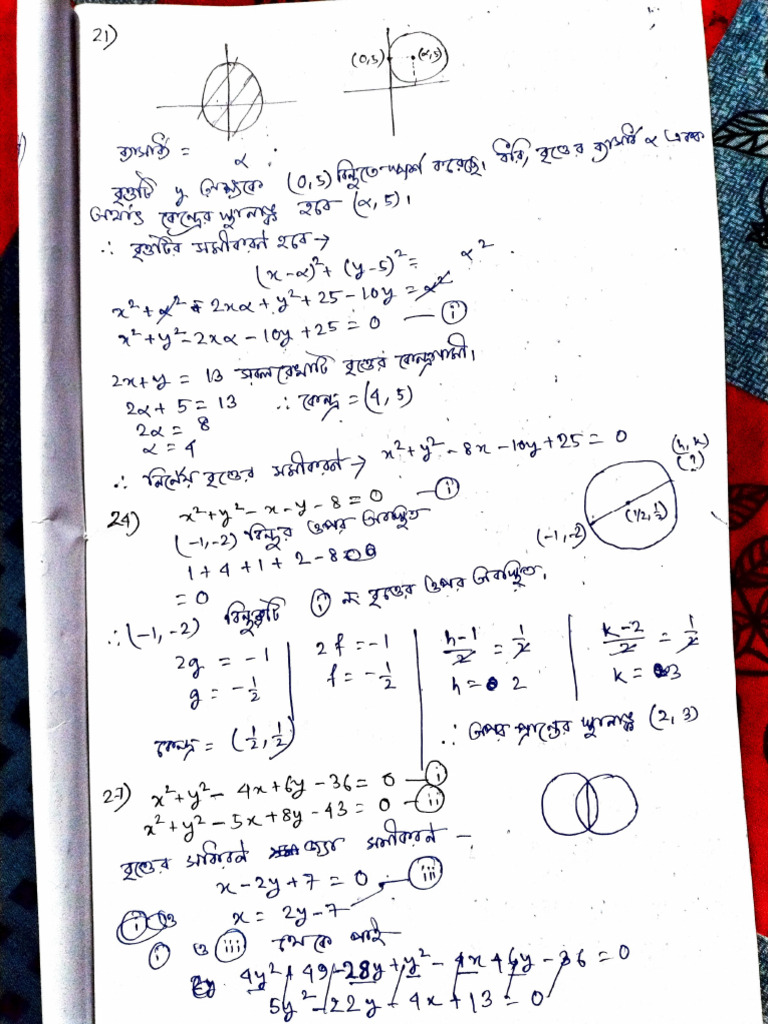 21)
(0,5) (α,5)
ব্যাসার্ধ = α
বৃত্তটি y অক্ষকে (0,5) বিন্দুতে স্পর্শ করেছে। ধরি, বৃত্তের ব্যাসার্ধ α একক
অর্থাৎ কেন্দ্রের স্থানাঙ্ক হবে (α, 5)।
∴ বৃত্তটির সমীকরণ হবে →
(x-α)² + (y-5)² = α²
x² + α² - 2xα + y² + 25 - 10y = α²
x² + y² - 2xα - 10y + 25 = 0 — (i)
2x + y = 13 সরলরেখাটি বৃত্তের কেন্দ্রগামী।
2α + 5 = 13 ∴ কেন্দ্র = (4, 5)
2α = 8
α = 4
∴ নির্ণেয় বৃত্তের সমীকরণ → x² + y² - 8x - 10y + 25 = 0
24) x² + y² - x - y - 8 = 0 — (i)
(h, k) (?)
(-1,-2) বিন্দুর ওপর অবস্থিত
(-1,-2) (1/2, 1/2)
1 + 4 + 1 + 2 - 8
= 0
∴ (-1, -2) বিন্দুটি (i) নং বৃত্তের ওপর অবস্থিত।
2g = -1 2f = -1 h-1/2 = 1/2 k-2/2 = 1/2
g = -1/2 f = -1/2 h = 2 k = 3
কেন্দ্র = (1/2, 1/2) ∴ অপর প্রান্তের স্থানাঙ্ক (2, 3)
27) x² + y² - 4x + 6y - 36 = 0 — (i)
x² + y² - 5x + 8y - 43 = 0 — (ii)
বৃত্তের জ্যা সমীকরণ -
x - 2y + 7 = 0 — (iii)
x = 2y - 7
(i) ও (iii) থেকে পাই
4y² + 49 - 28y + y² - 4x + 6y - 36 = 0
5y² - 22y - 4x + 13 = 0